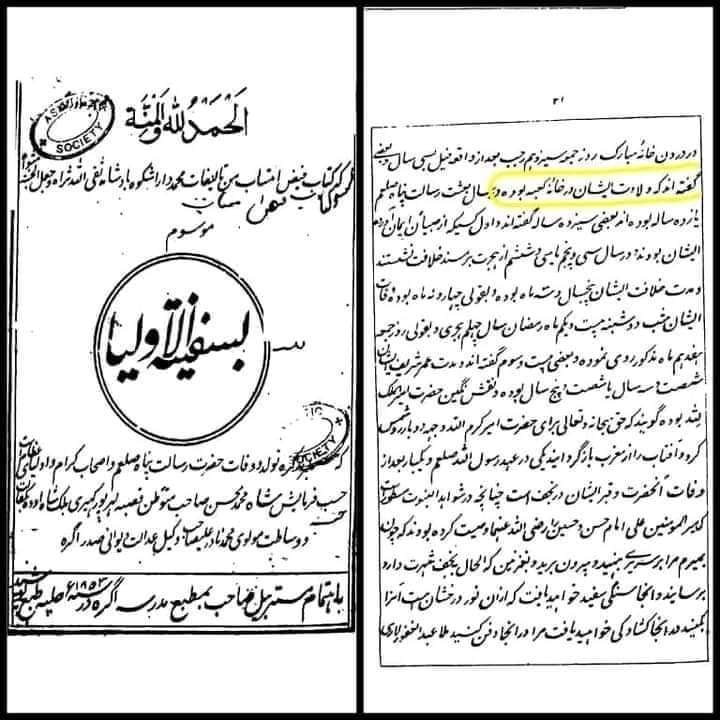 الحمد للہ والمنة
SOCIETY
کہ کتاب فیض انتساب من تالیفات محمد دارا شکوہ بادشاہ
موسوم
بسفینة الاولیا
SOCIETY
تولد و وفات حضرت رسالت پناہ صلعم و اصحاب کرام و اولیای
حسب فرمایش شاہ محمد محسن صاحب متوطن قصبہ
و وساطت مولوی محمد وکیل عدالت دیوانی صدر اگره
باہتمام صاحب بمطبع مدرسہ اگره در ۱۸۵۳
۲۱
در درون خانهٔ مبارک روز جمعه سیزدهم رجب بعد از واقعه فیل بسی سال و بعضی
گفته اند که ولادت ایشان در خانهٔ کعبه بوده و در سال بعثت رسالت پناه صلعم
یازده ساله بوده اند بعضی سیزده ساله گفته اند و اول کسیکه از صبیان ایمان آورده
ایشان بودند در سال سی و پنجم یا سی و ششم از هجرت بر مسند خلافت نشستند
و مدت خلافت ایشان پنجسال و سه ماه بوده و بقولی چهار و نه ماه بوده وفات
ایشان شب دوشنبه بیست و یکم ماه رمضان سال چهلم هجری و بقولی روز جمعه
هفدهم ماه مذکور روی نموده و بعضی بیست و سوم گفته اند و مدت عمر شریف ایشان
شصت و سه سال یا شصت و پنج سال بوده و نقش نگین حضرت امیر الملک
للہ بوده گویند که حق سبحانه و تعالی برای حضرت امیر کرم اللہ وجهه دو بار
کرد و آفتاب را از مغرب باز گردانید یکی در عهد رسول اللہ صلعم و یکبار بعد از
وفات آنحضرت و قبر ایشان در نجف است چنانچه در شواهد النبوت مسطور است
که امیر المومنین علی امام حسن و حسین را رضی اللہ عنهما وصیت کرده بودند که چون
بمیرم مرا بر سریری بنهید و بیرون برید و بغرنین که الحال بنجف شهرت دارد
برسانید و آنجا سنگی سفید خواهید یافت که از آن نور درخشان است آنرا
بکنید در آنجا کشادگی خواهید یافت مرا در آنجا دفن کنید ملا عبد الغفور لاری